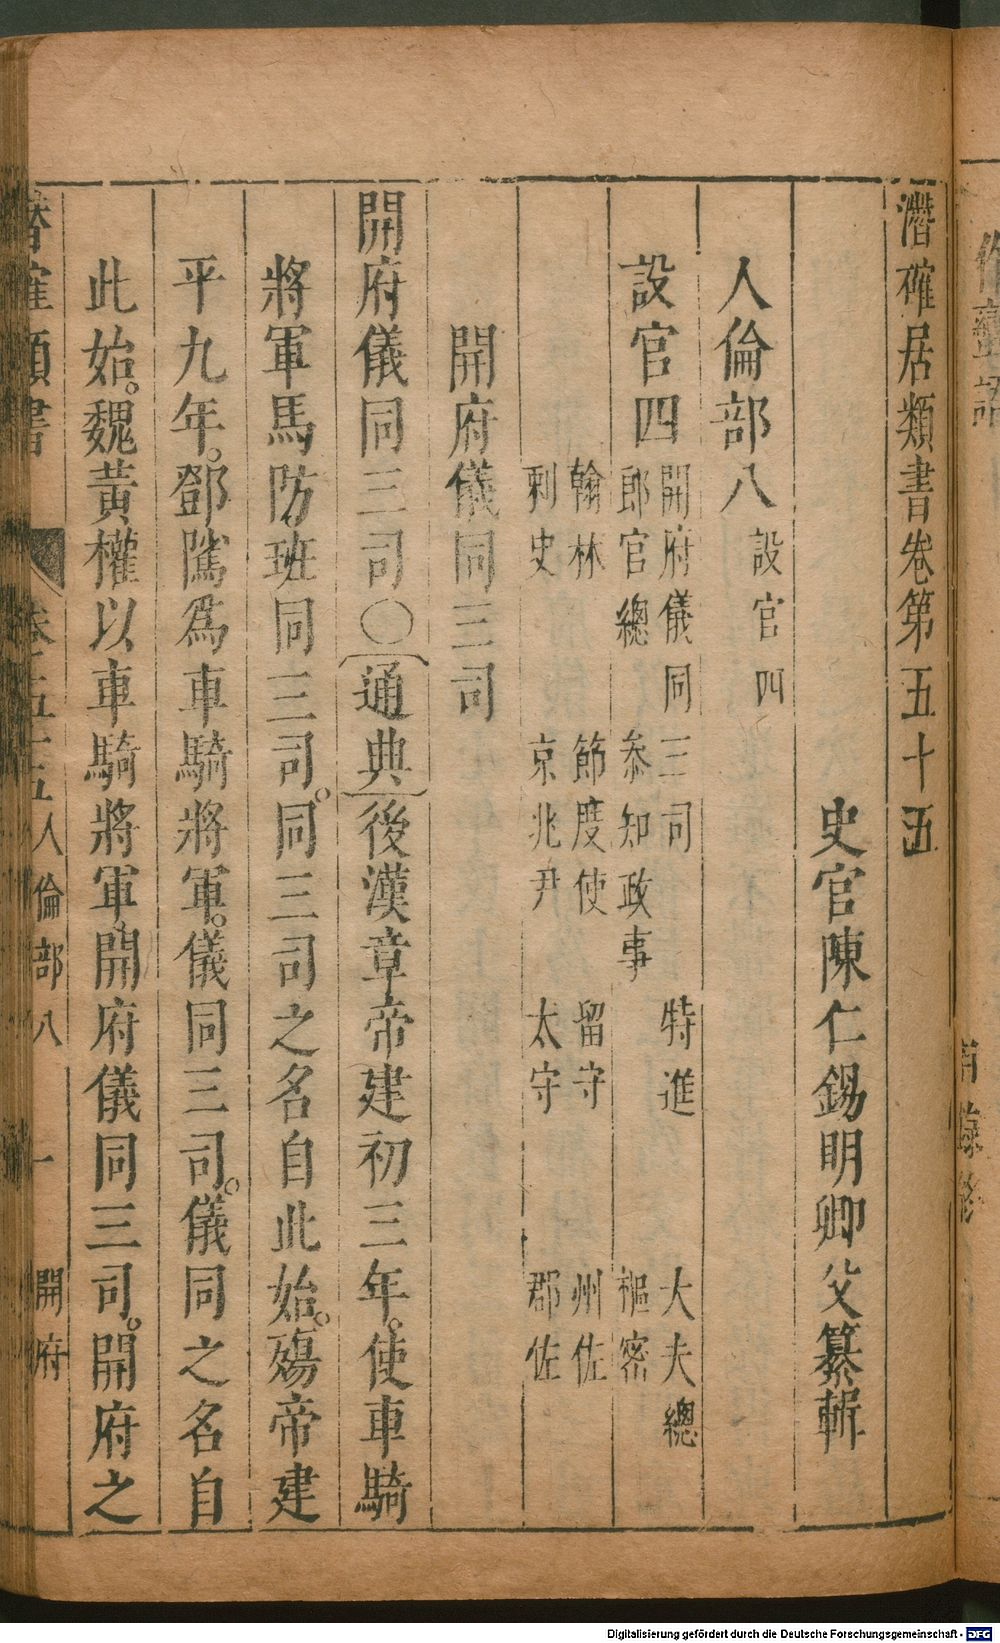 潛確居類書卷第五十五
史官陳仁錫明卿父纂輯
人倫部八 設官四
設官四 開府儀同三司 特進 大夫總
郎官總 參知政事 樞密
翰林 節度使 留守 州佐
刺史 京兆尹 太守 郡佐
開府儀同三司
開府儀同三司〇〔通典〕後漢章帝建初三年。使車騎
將軍馬防班同三司。同三司之名自此始。殤帝建
平九年。鄧騭爲車騎將軍。儀同三司。儀同之名自
此始。魏黃權以車騎將軍。開府儀同三司。開府之
類書 卷五十五 人倫部八 一 開府
Digitalisierung gefördert durch die Deutsche Forschungsgemeinschaft - DFG